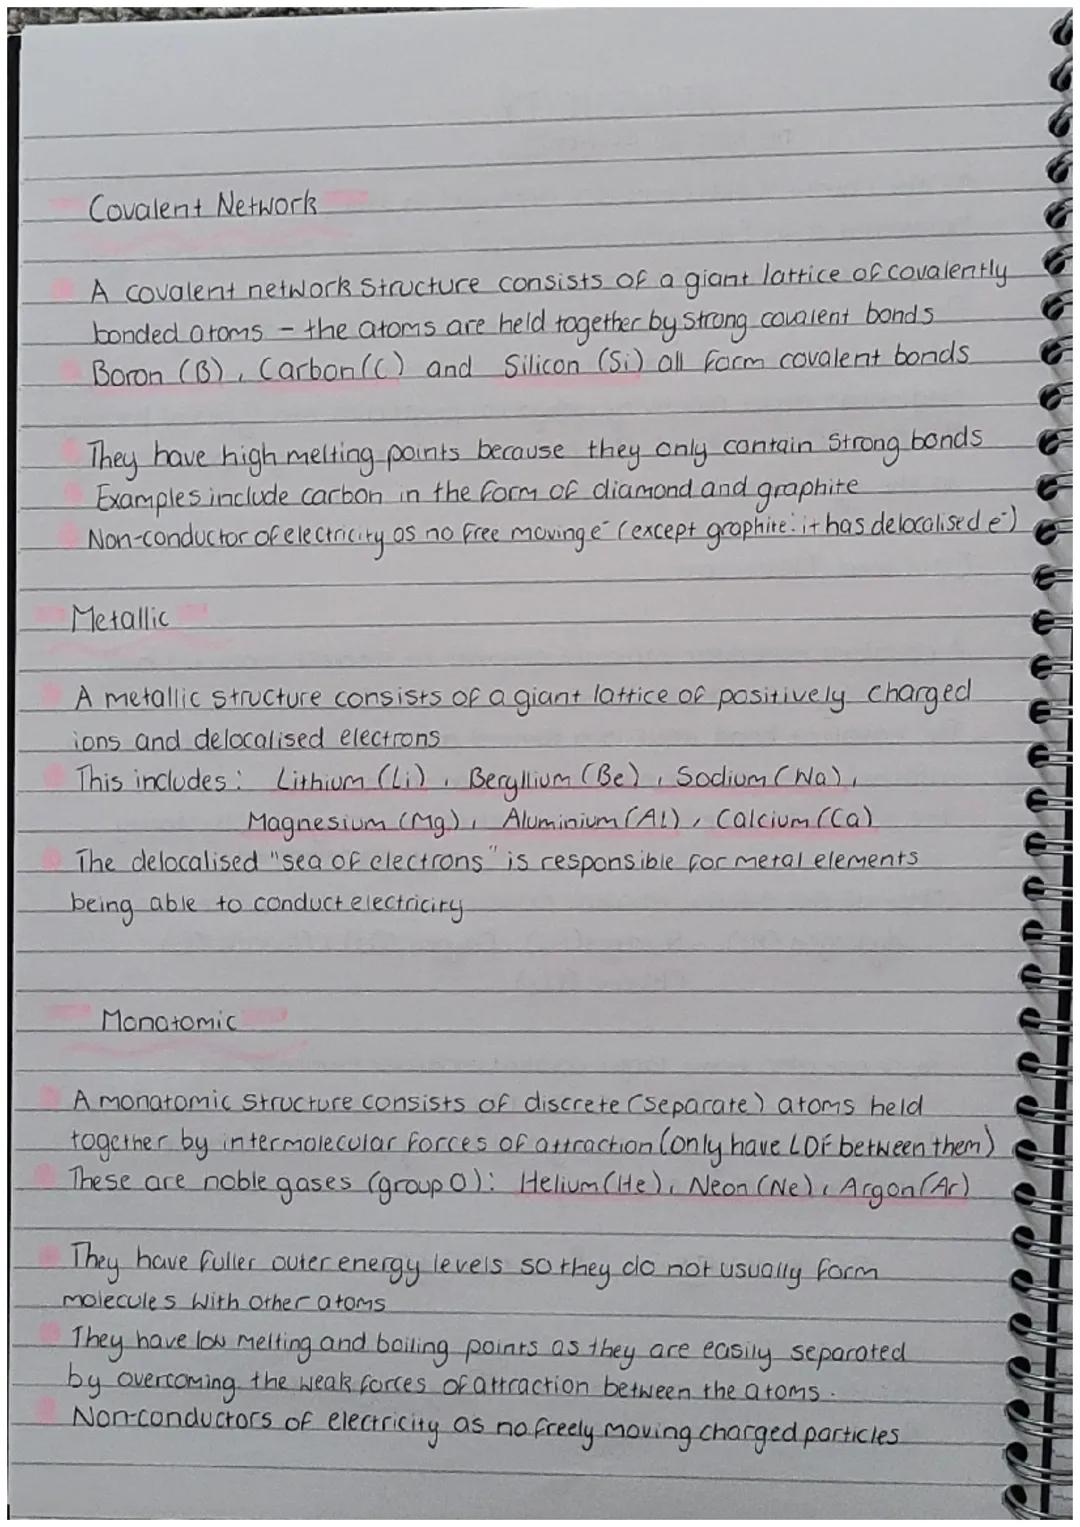 Covalent Network
A covalent network structure consists of a giant lattice of covalently
bonded atoms - the atoms are held together by strong covalent bonds
Boron (B), Carbon (C) and Silicon (Si) all form covalent bonds
They have high melting points because they only contain strong bonds
Examples include carbon in the form of diamond and graphite
Non-conductor of electricity as no free moving e⁻ (except graphite: it has delocalised e⁻)
Metallic
A metallic structure consists of a giant lattice of positively charged
ions and delocalised electrons
This includes: Lithium (Li), Beryllium (Be), Sodium (Na),
Magnesium (Mg), Aluminium (Al), Calcium (Ca)
The delocalised "sea of electrons" is responsible for metal elements
being able to conduct electricity
Monatomic
A monatomic structure consists of discrete (separate) atoms held
together by intermolecular forces of attraction (only have LDF between them)
These are noble gases (group 0): Helium (He), Neon (Ne), Argon (Ar)
They have fuller outer energy levels so they do not usually form
molecules with other atoms
They have low melting and boiling points as they are easily separated
by overcoming the weak forces of attraction between the atoms.
Non-conductors of electricity as no freely moving charged particles